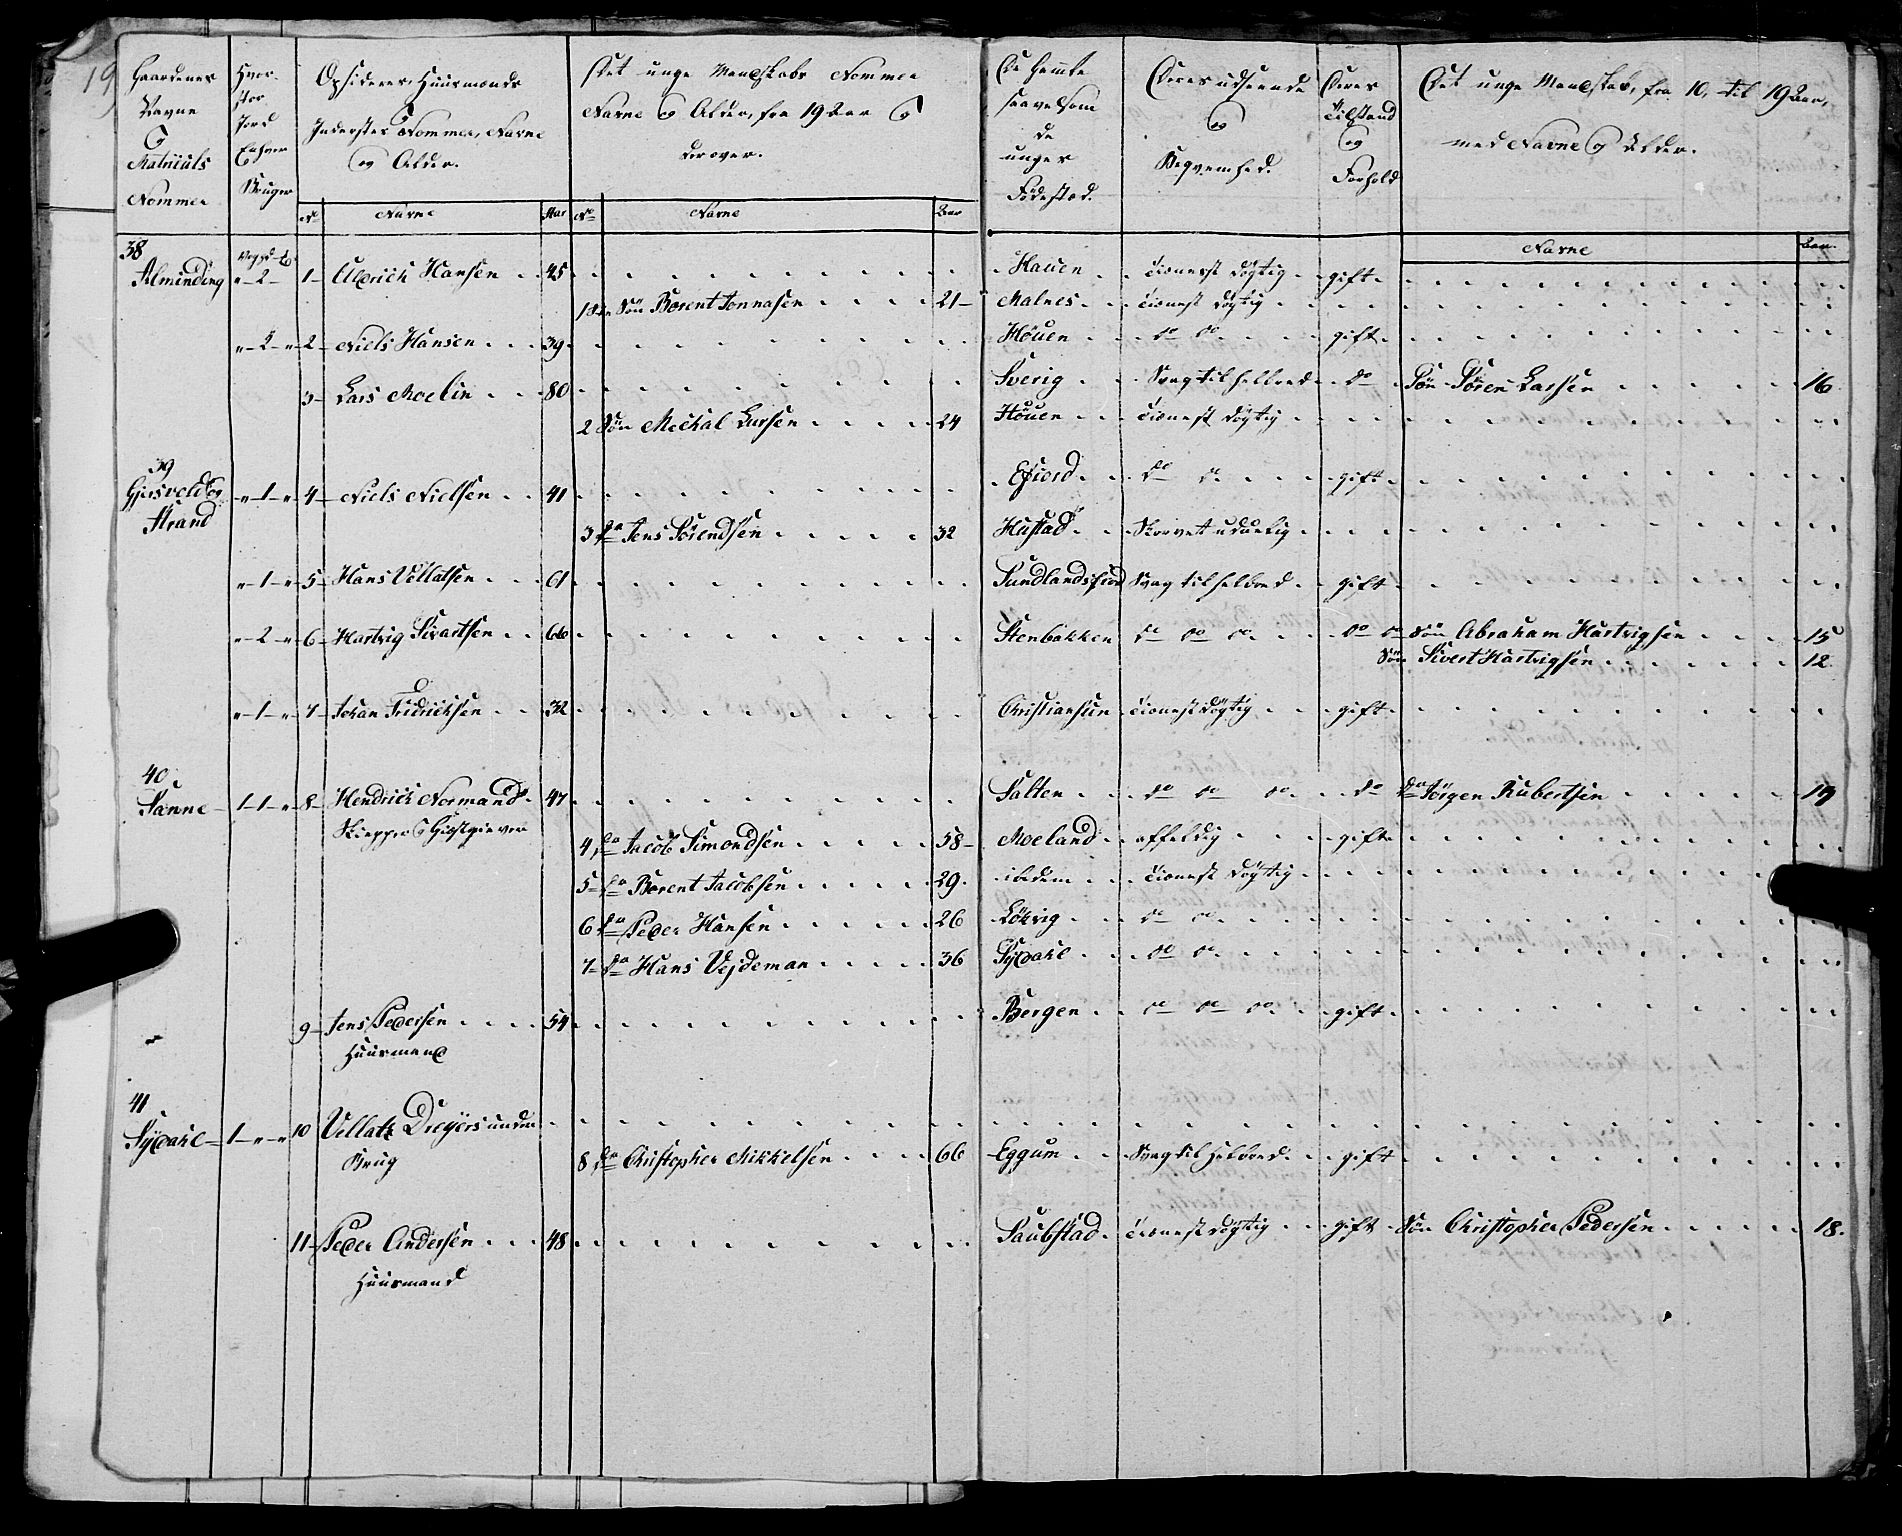 19
Gaardenes Navne og Matriculs Nommer
Hvor stor Jord Enhver Bruger
Opsidderes, Huusmænds Inderstes Nommer, Navne og Alder.
Det unge Mandskabs Nommer Navne og Alder, fra 19 Aar og derover.
De semte saavelsom de unges Fødestæd.
Deres udseende og Beqvemhed.
Deres Tilstand og Forhold
Det unge Mandskab, fra 10, til 19 Aar, med Navne og Alder.
No Navne Aar No Navne Aar Navne Aar
38
Alminding " 2 - 1 - Uldrich Hansen 45 Hauen dienest dögtig gift
1 Søn Barent Jonnasen 21 Malnes dienest dögtig
" 2 " 2 - Niels Hansen 39 Höuen do do gift
3 - Lars Moelin 80 Sverig Svag til helbred do Søn Sören Larsen 16
2 Søn Mechal Larsen 24 Höuen dienest dögtig
39
Strand " 1 " 4 - Niels Nielsen 41 Efierd do do gift
3 do Jens Sörendsen 32 Hustad Skorvet uduelig
" 1 " 5 - Hans Vellatsen 61 Sundlandsfiord Svag til helbred gift
" 2 " 6 - Hartvig Sivartsen 66 Stenbakken do do do do do Søn Abraham Hartvigsen 15
Søn Sivert Hartvigsen 12
" 1 " 7 - Johan Fridrichsen 32 Christiansun dienest dögtig gift
40
Sanne 1 - 1 - " 8 - Hendrich Normand 47 Salten do do do do do Jörgen Rubertsen 17
Skiepper og Giestgiever
4 do Jacob Simondsen 58 Moeland affeldig gift
5 do Barent Jacobsen 29 ibidem dienest dögtig
6 do Peder Hansen 26 Lökvig do do
7 do Hans Vejdeman 36 Sydahl do do
9 - Jens Pedersen 54 Bergen do do do gift
Huusmand
41
Sydahl 1 - " - " 10 Vellatz Dreyers under
Brug
8 do Christopher Mikkelsen 66 Eggum Svag til helbred gift
11 - Peder Andersen 48 Saubstad dienest dögtig gift Søn Christopher Pedersen 18
Huusmand